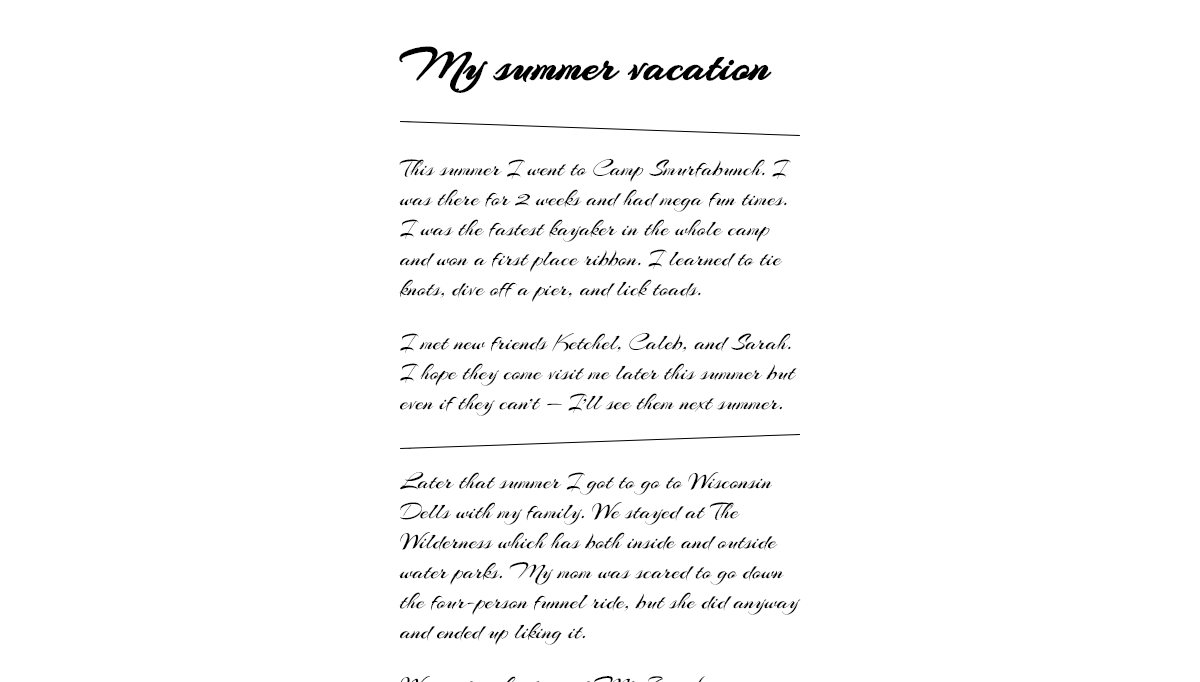 My summer vacation
This summer I went to Camp Smurfabunch. I
was there for 2 weeks and had mega fun times.
I was the fastest kayaker in the whole camp
and won a first place ribbon. I learned to tie
knots, dive off a pier, and lick toads.
I met new friends Ketchel, Caleb, and Sarah.
I hope they come visit me later this summer but
even if they can't – I'll see them next summer.
Later that summer I got to go to Wisconsin
Dells with my family. We stayed at The
Wilderness which has both inside and outside
water parks. My mom was scared to go down
the four-person funnel ride, but she did anyway
and ended up liking it.